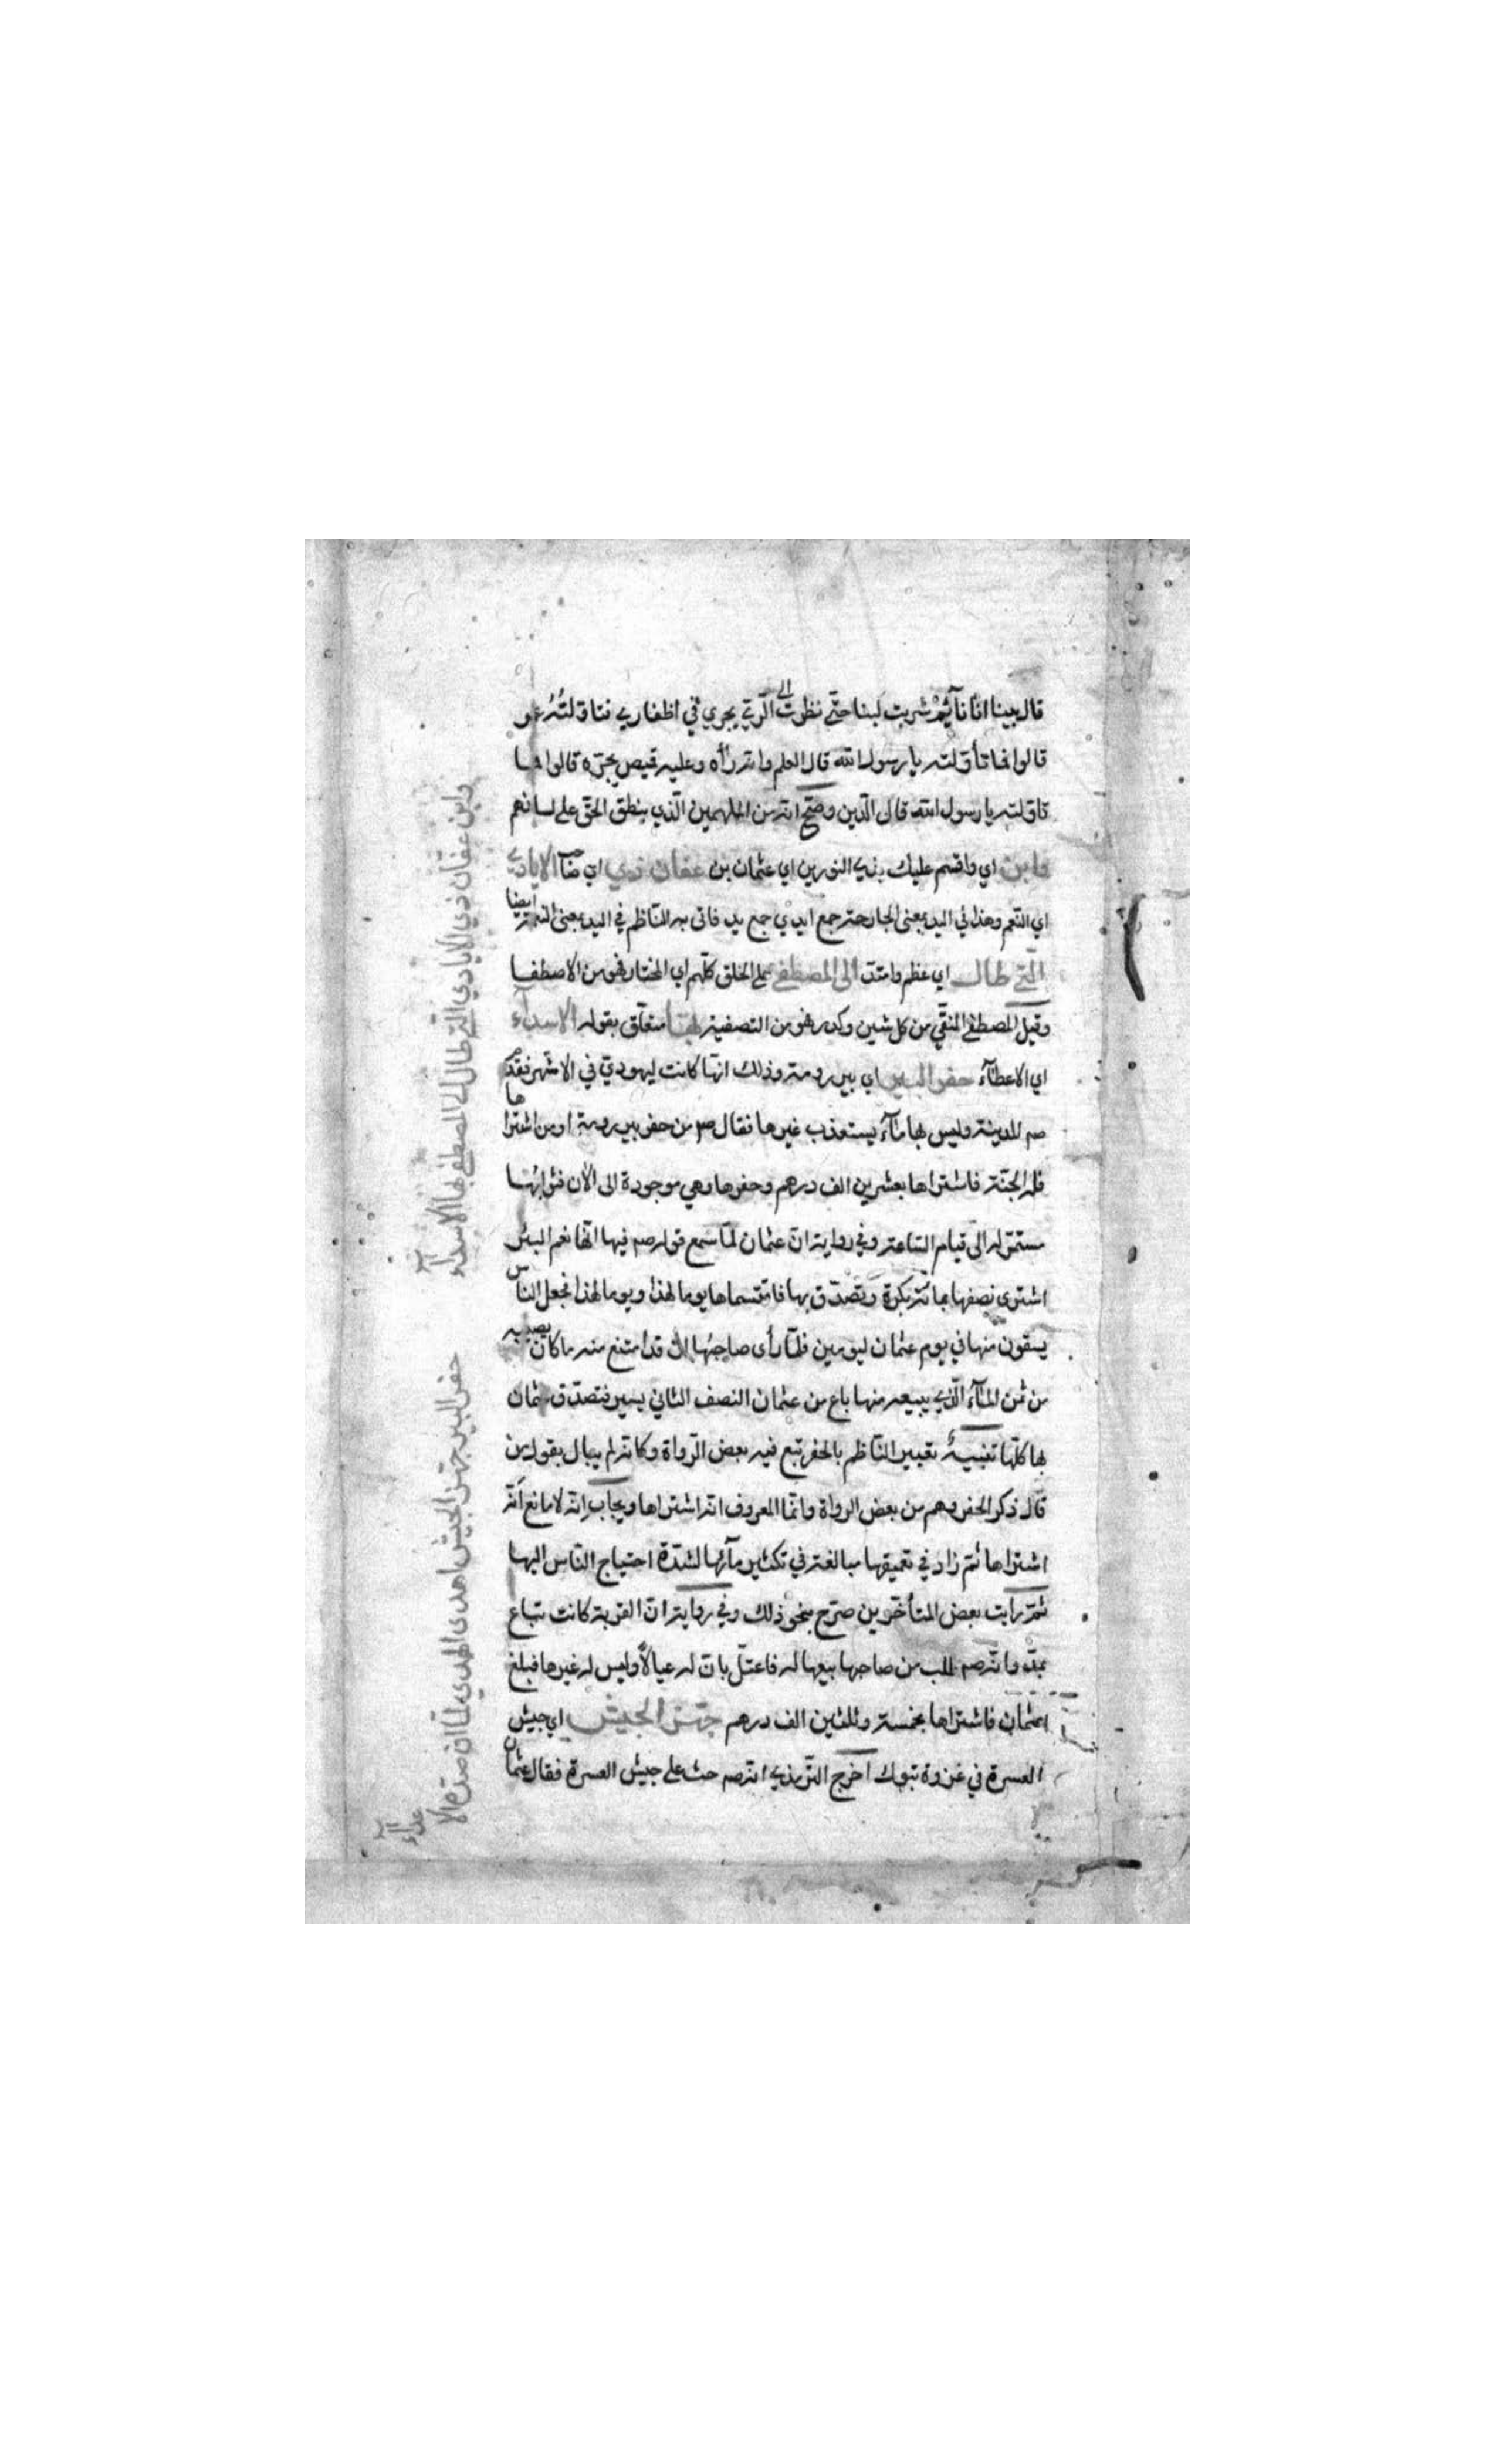 قال بينا انا نآئم شربت لبنا حتّى نظرت الى الرّي يجري في اظفاري فناولته عمر
قالوا فما تأوّلته يا رسول الله قال العلم وانه رأه وعليه قميص يجرّه قالوا فما
تاولته يا رسول الله قال الدّين وصحّ انه من الملهمين الّذي ينطق الحق على لسانهم
وابن اي واقسم عليك بذي النورين اي عثمان بن عفان ذي اي صاحب الايادي
اي النّعم وهذا في اليد بمعنى الجارحة جمع ايدي جمع يد فاتى به النّاظم في اليد بمعنى النعمة ايضا
الّتي طال اي عظم وامتدّ الى المصطفى على الخلق كلّهم اي المختار فهو من الاصطفا
وقيل المصطفى المنقّى من كل شين وكدر فهو من التصفية لها متعلّق بقوله الاسدآء
اي الاعطآء حفر البير اي بير رومة وذلك انّها كانت ليهودي في الاشهر فقدم
صم المدينة وليس بها مآء يستعذب غيرها فقال صم من حفر بير رومة او من اشتراها
فله الجنّة فاشتراها بعشرين الف درهم وحفرها وهي موجودة الى الآن فثوابها
مستمرّ له الى قيام السّاعة وفي رواية انّ عثمان لمّا سمع قوله صم فيها انّها نعم البئر
اشترى نصفها بمائة بكرة وتصدّق بها فاقتسماها يوما لهذا ويوما لهذا فجعل الناس
يسقون منها في يوم عثمان ليومين فلمّا رأى صاحبها ان قد امتنع منه ما كان يصيبه
من ثمن المآء الّذي يبيعه منها باع من عثمان النصف الثاني بيسير فتصدّق عثمان
بها كلّها تنبيه تعبير النّاظم بالحفر تبع فيه بعض الرّواة وكانه لم يبال بقول من
قال ذكر الحفر وهم من بعض الرواة وانّما المعروف انه اشتراها ويجاب انّه لا مانع أنّه
اشتراها ثم زاد في تعميقها مبالغة في تكثير مآئها لشدّة احتياج النّاس اليها
ثمّ رايت بعض المتأخّرين صرّح بنحو ذلك وفي رواية انّ القربة كانت تباع
بمدّ وانّه صم طلب من صاحبها بيعها له فاعتلّ بانّ له عيالاً وليس له غيرها فبلغ
عثمان فاشتراها بخمسة وثلثين الف درهم جهّز الجيش اي جيش
العسرة في غزوة تبوك اخرج الترمذي انه صم حث على جيش العسرة فقال عثمان
وابن عفان ذي الايادي الّتي طال الى المصطفى بها الاسدآء
حفر البير جهّز الجيش اهدى الهدي لمّا ان صدّه الاعدآء